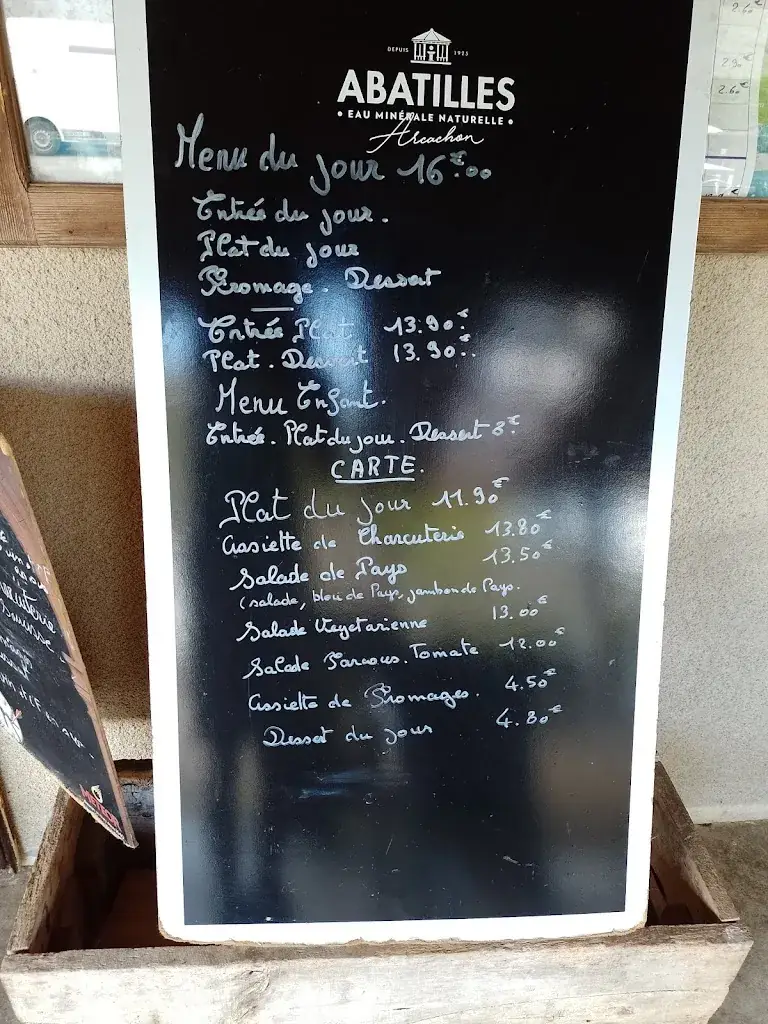 DEPUIS 1925
ABATILLES
• EAU MINÉRALE NATURELLE •
Arcachon
Menu du jour 16€.00
Entrée du jour.
Plat du jour
Fromage. Dessert
Entrée Plat 13.90€.
Plat. Dessert 13.90€.
Menu Enfant.
Entrée. Plat du jour. Dessert 8€.
CARTE.
Plat du jour 11.90€
Assiette de Charcuterie 13.80€
Salade de Pays 13.50€
(salade, bleu de Pays, jambon de Pays.
Salade Vegetarienne 13.00€
Salade Tomate 12.00€
Assiette de Fromages. 4.50€
Dessert du jour 4.80€
2.60€
2.90€
2.60€
METEOR